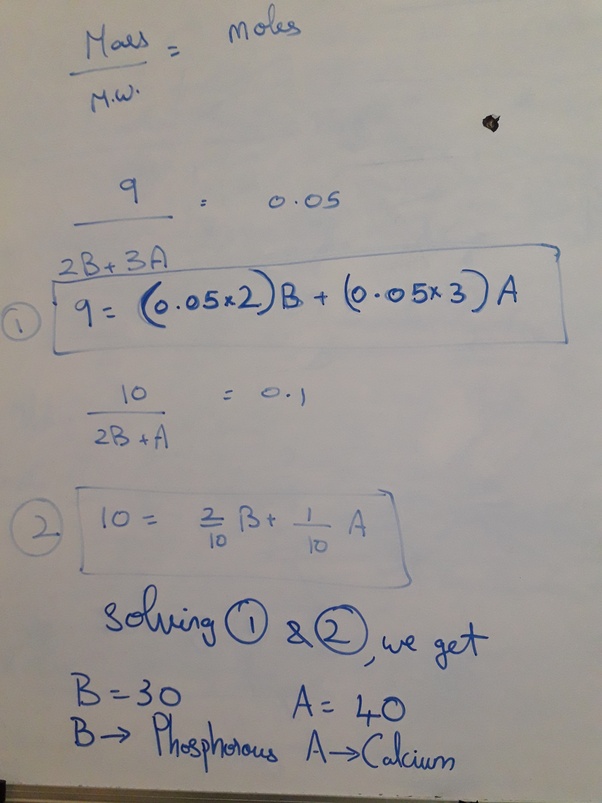 Mass = moles
M.W.
9 = 0.05
2B + 3A
① 9 = (0.05×2)B + (0.05×3)A
10 = 0.1
2B + A
② 10 = 2/10 B + 1/10 A
Solving ① & ②, we get
B = 30 A = 40
B → Phosphorous A → Calcium